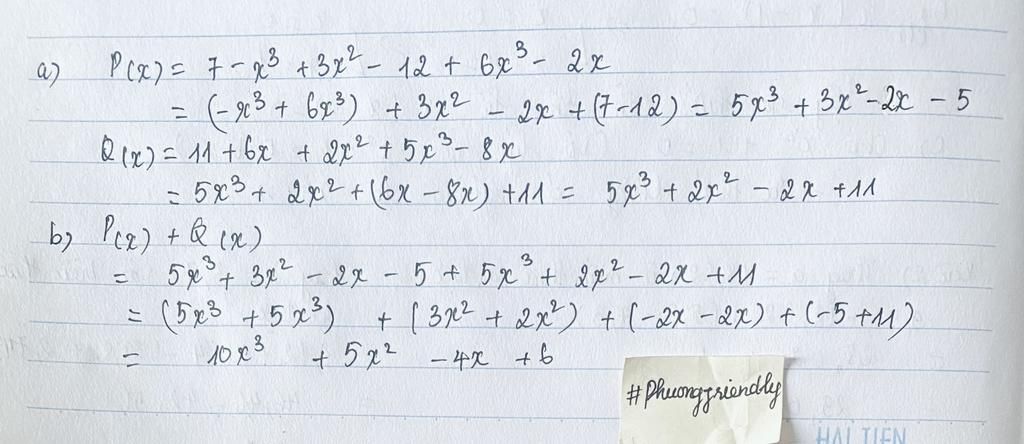 a) P(x) = 7 - x³ + 3x² - 12 + 6x³ - 2x
= (-x³ + 6x³) + 3x² - 2x + (7-12) = 5x³ + 3x² - 2x - 5
Q(x) = 11 + 6x + 2x² + 5x³ - 8x
= 5x³ + 2x² + (6x - 8x) + 11 = 5x³ + 2x² - 2x + 11
b) P(x) + Q(x)
= 5x³ + 3x² - 2x - 5 + 5x³ + 2x² - 2x + 11
= (5x³ + 5x³) + (3x² + 2x²) + (-2x - 2x) + (-5 + 11)
= 10x³ + 5x² - 4x + 6
#Phuongfriendly
HẢI TIẾN